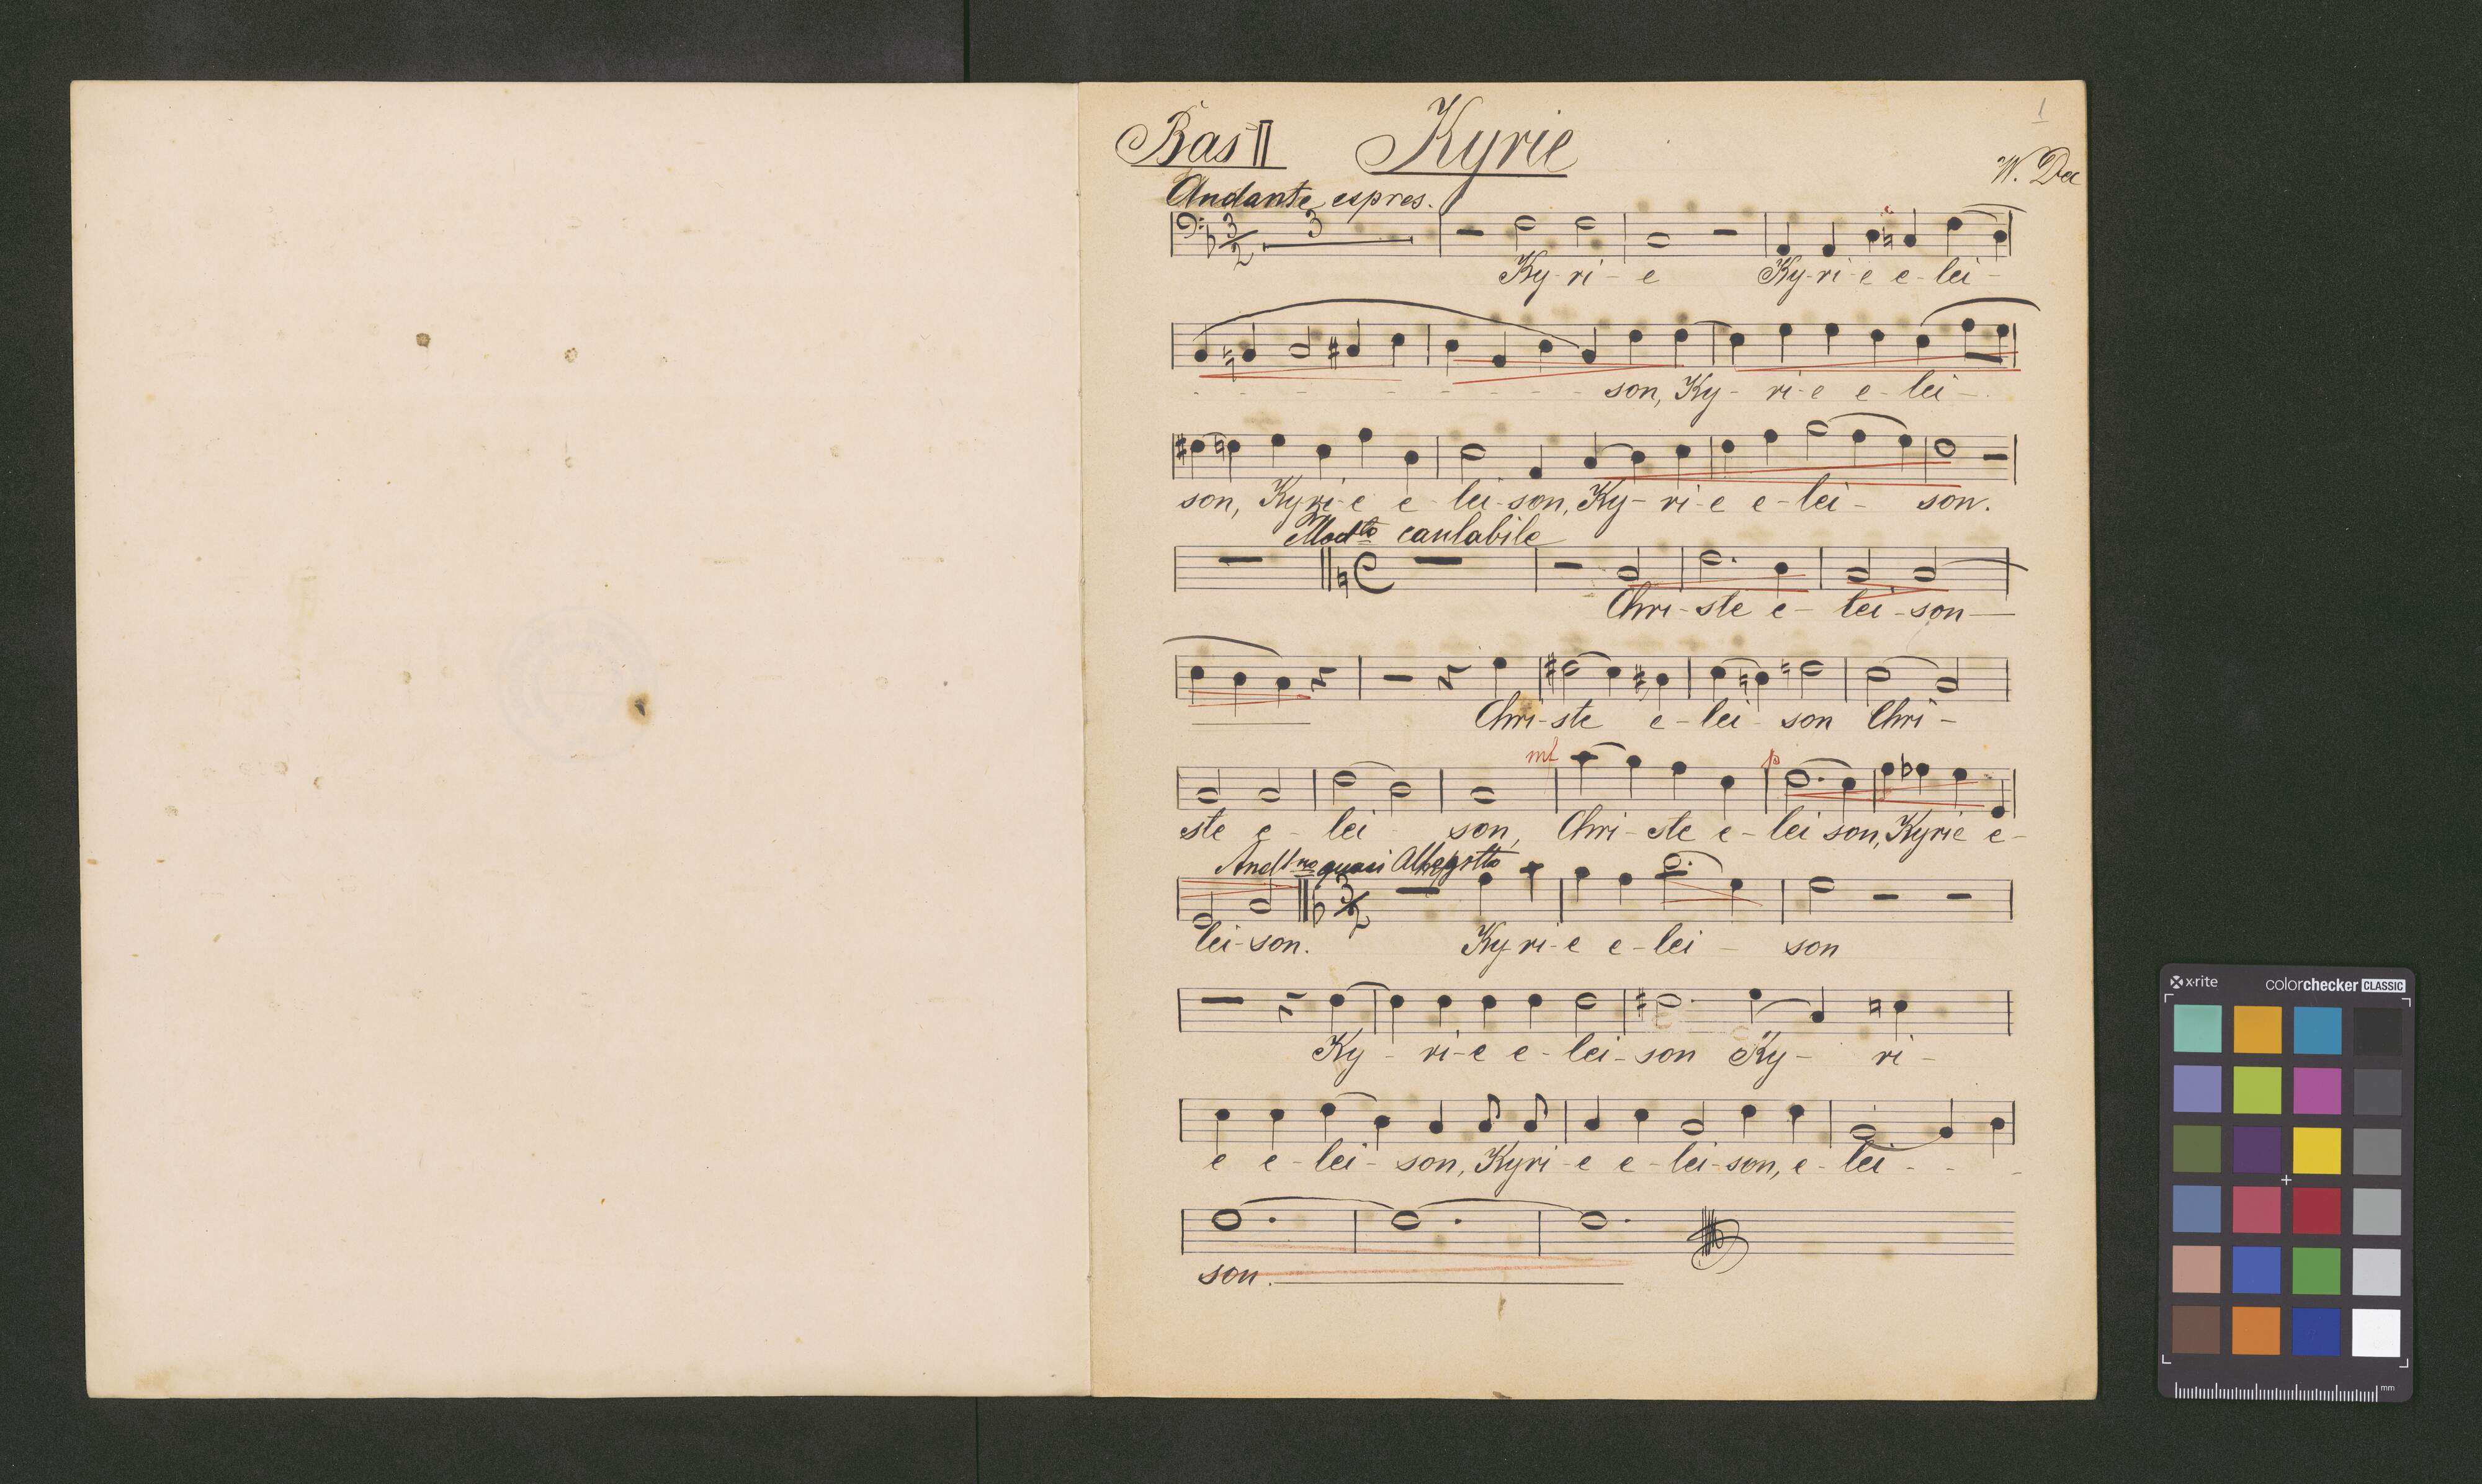 1
Bas II Kyrie
W. De
Andante espres.
3 2 3
Ky - ri - e Ky - ri - e e - lei -
- - - - - - - - son, Ky - ri - e e - lei -
son, Kyri - e e - lei - son, Ky - ri - e e - lei - son.
Modto cantabile
Chri - ste e - lei - son
Chri - ste e - lei - son Chri -
mf p
ste e - lei - son, Chri - ste e - lei son, Kyrie e -
Andtno quasi Allegrtto
3 2
lei - son. Ky ri - e e - lei - son
Ky - ri - e e - lei - son Ky - ri -
e e - lei - son, Kyri - e e - lei - son, e - lei - -
son.
x·rite colorchecker CLASSIC
mm